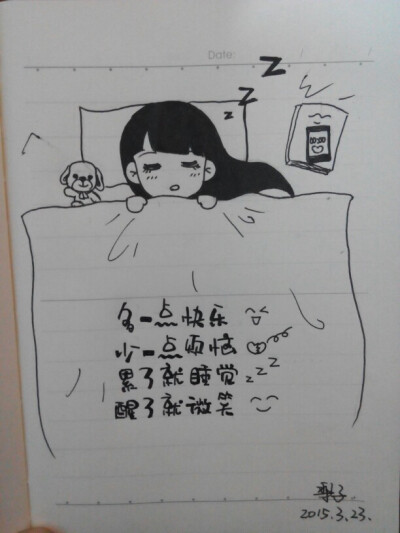 Date:
z
z
z
00:00
多一点快乐
少一点烦恼
累了就睡觉 zzz
醒了就微笑
2015.3.23.